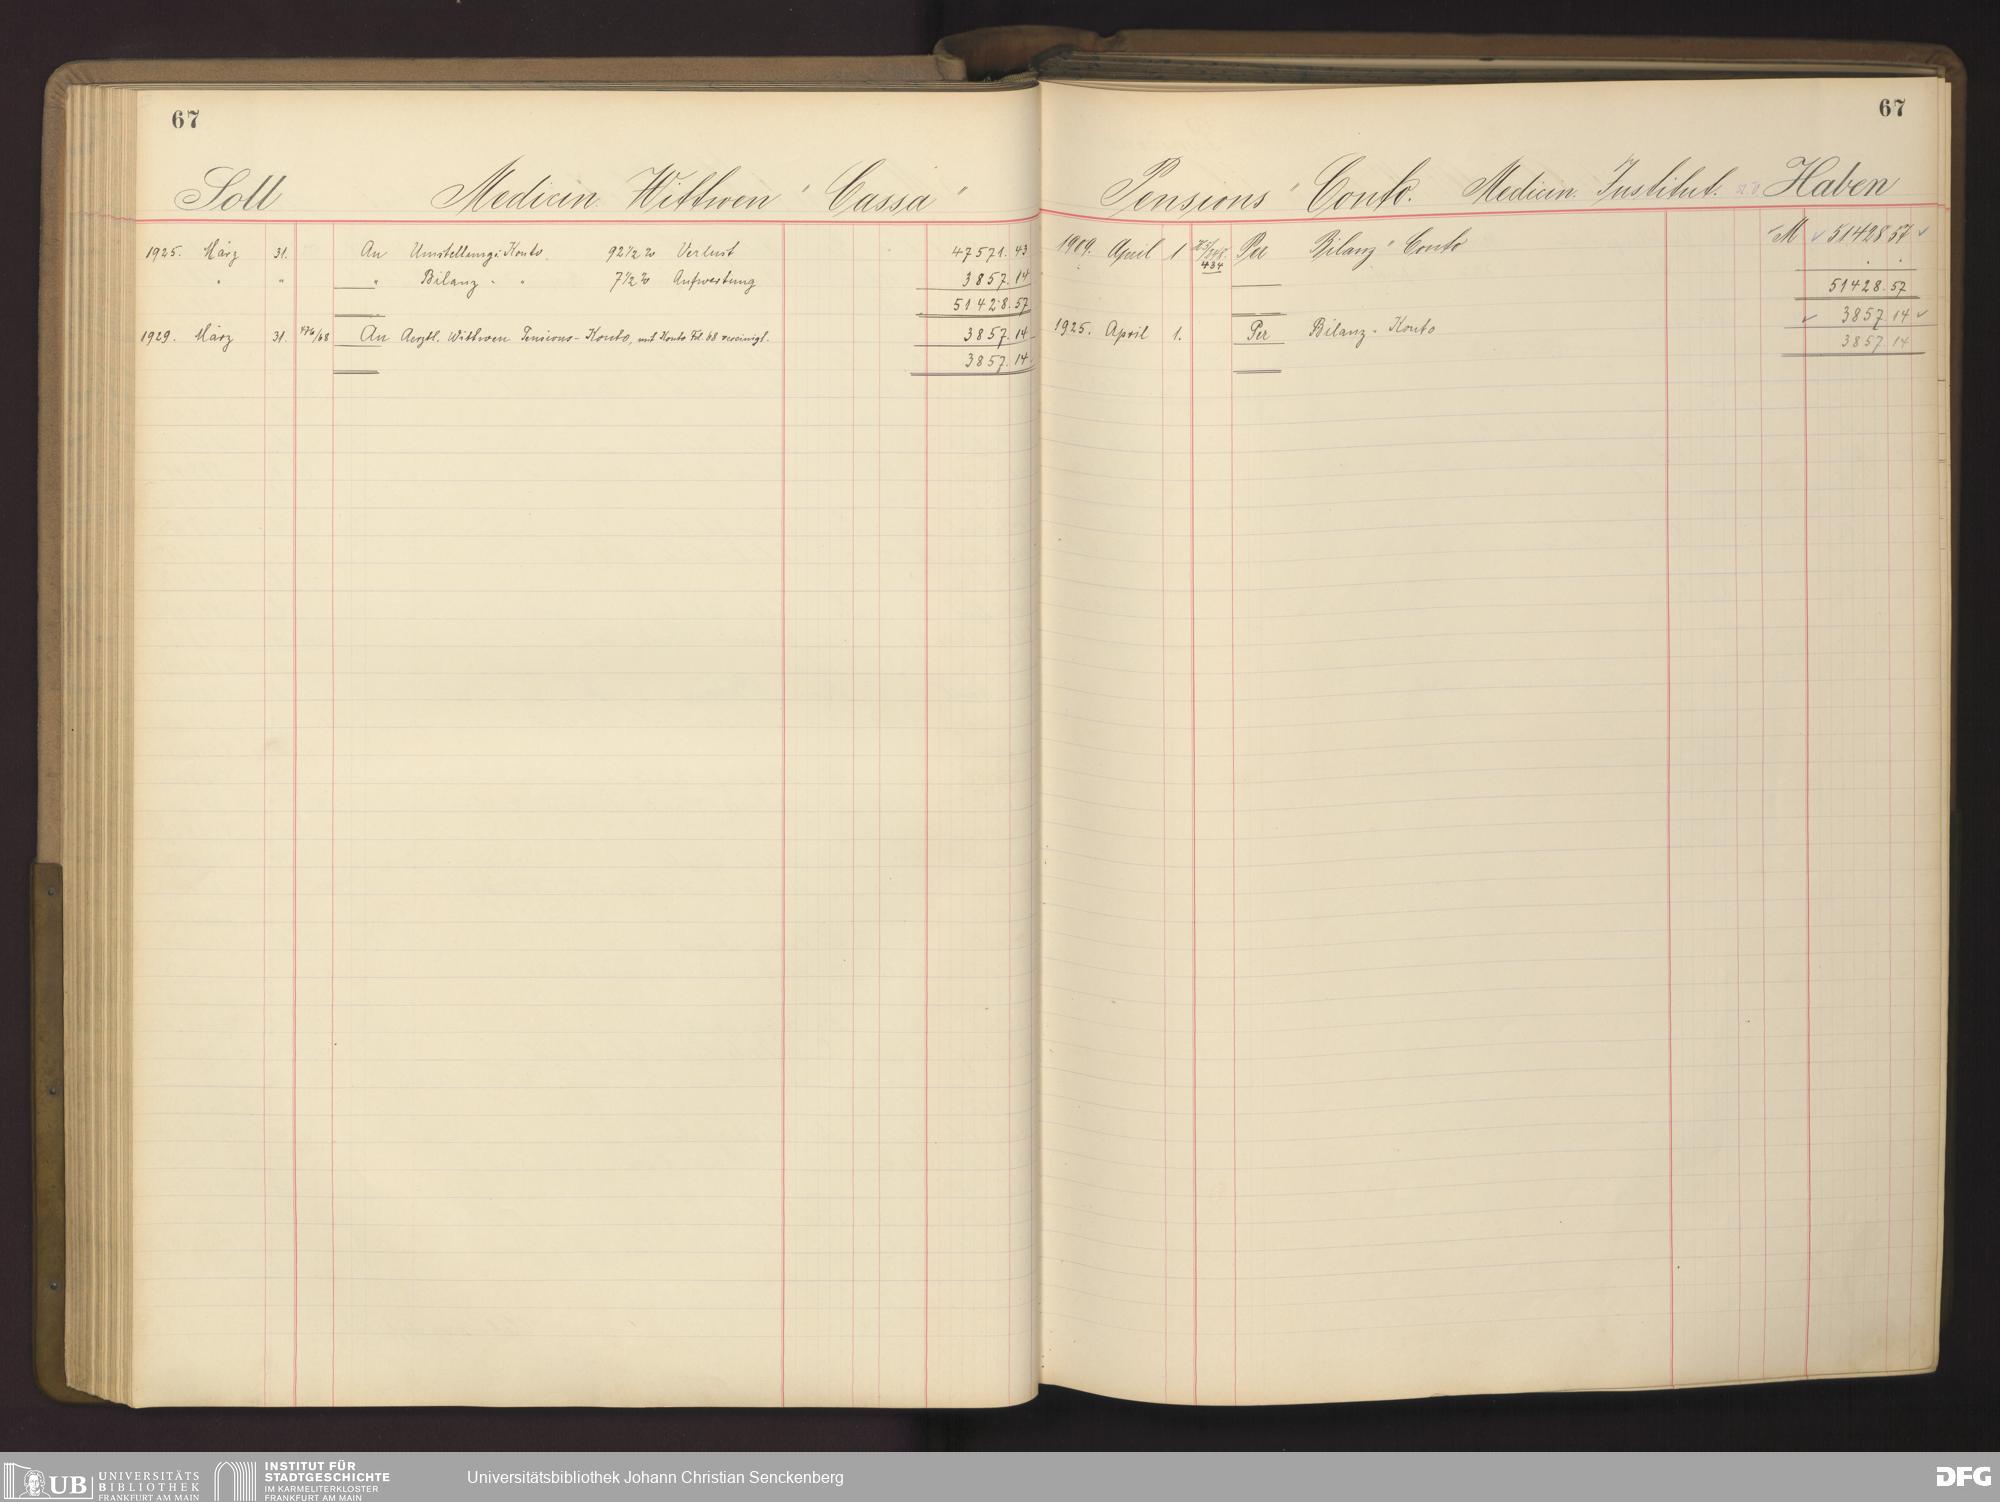 67
Soll Medicin. Wittwen " Cassa "
1925. März 31. An Umstellungs-Konto 92 1/2 % Verlust 47571.43
" " " Bilanz - " 7 1/2 % Aufwertung 3857.14
51428.57
1929. März 31. 476/68 An Aerztl. Wittwen Pensions-Konto, mit Konto Fol. 68 vereinigt. 3857.14
3857.14
67
Pensions " Conto. Medicin. Institut. Haben
1909. April 1 Per Bilanz " Conto M 51428 57
434
51428.57
1925. April 1. Per Bilanz - Konto 3857.14
3857.14
UB UNIVERSITÄTS
BIBLIOTHEK
FRANKFURT AM MAIN
INSTITUT FÜR
STADTGESCHICHTE
IM KARMELITERKLOSTER
FRANKFURT AM MAIN
Universitätsbibliothek Johann Christian Senckenberg
DFG